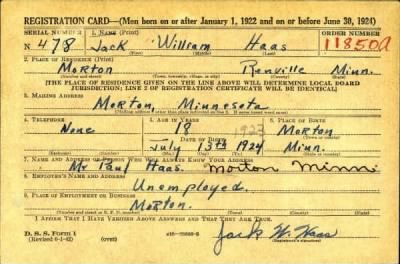 REGISTRATION CARD—(Men born on or after January 1, 1922 and on or before June 30, 1924)
SERIAL NUMBER 1. NAME (Print) ORDER NUMBER
N 478 Jack William Haas 11850A
(First) (Middle) (Last)
2. PLACE OF RESIDENCE (Print)
Morton Renville Minn.
(Number and street) (Town, township, village, or city) (County) (State)
[THE PLACE OF RESIDENCE GIVEN ON THE LINE ABOVE WILL DETERMINE LOCAL BOARD
JURISDICTION; LINE 2 OF REGISTRATION CERTIFICATE WILL BE IDENTICAL]
3. MAILING ADDRESS
Morton, Minnesota
(Mailing address if other than place indicated on line 2. If same insert word same)
4. TELEPHONE 5. AGE IN YEARS 6. PLACE OF BIRTH
None 18 1923 Morton
DATE OF BIRTH (Town or county)
July 13th 1924 Minn.
(Exchange) (Number) (Mo.) (Day) (Yr.) (State or country)
7. NAME AND ADDRESS OF PERSON WHO WILL ALWAYS KNOW YOUR ADDRESS
Mr Paul Haas. Morton Minn
8. EMPLOYER'S NAME AND ADDRESS
Unemployed.
9. PLACE OF EMPLOYMENT OR BUSINESS
Morton.
(Number and street or R. F. D. number) (Town) (County) (State)
I AFFIRM THAT I HAVE VERIFIED ABOVE ANSWERS AND THAT THEY ARE TRUE.
D. S. S. Form 1
(Revised 6-1-42) (over)
Jack W. Haas